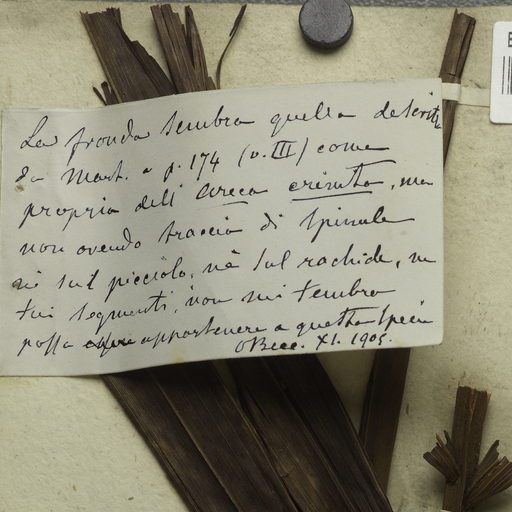 La fronda sembra quella descritta
da Mart. a p. 174 (v. III) come
propria dell' Areca crinita, ma
non avendo traccia di spinule
nè sul picciolo, nè sul rachide, nè
sui segmenti, non mi sembra
possa appartenere a questa specie
OBecc. XI. 1905.